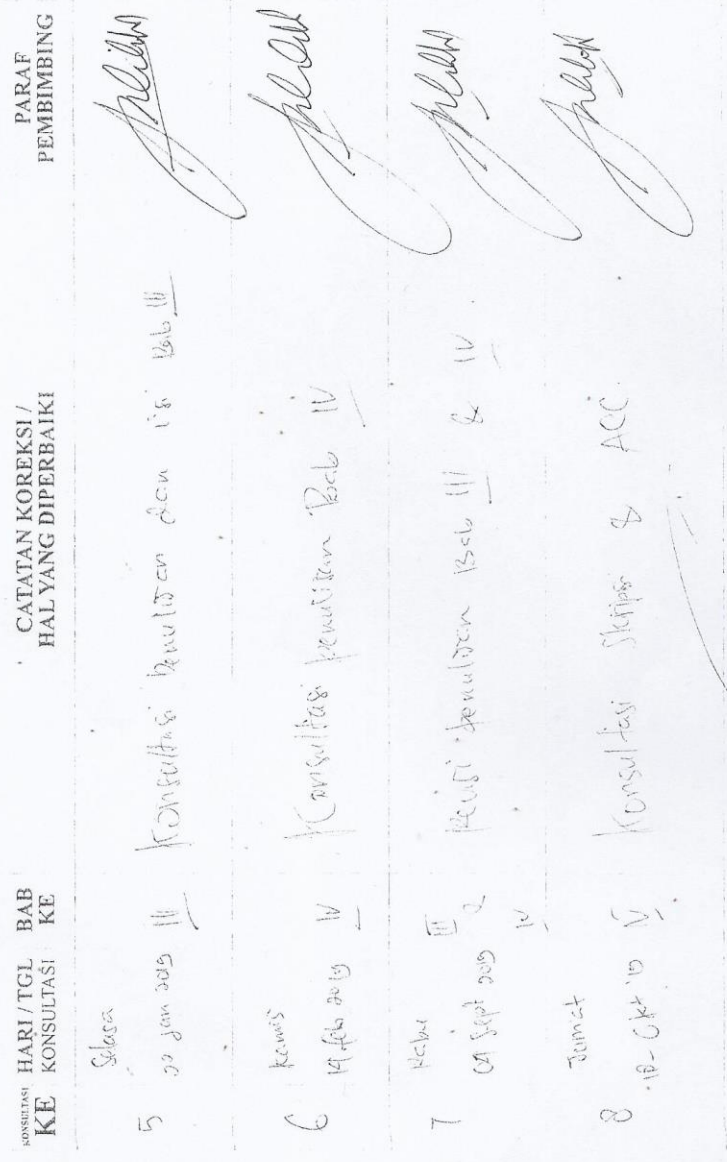 KONSULTASI KE
HARI / TGL KONSULTASI
BAB KE
CATATAN KOREKSI / HAL YANG DIPERBAIKI
PARAF PEMBIMBING
5
Selasa
jan 2019
III
Konsultasi penulisan dan isi Bab III
6
Kamis
14 feb 2019
IV
Konsultasi penulisan Bab IV
7
Rabu
04 Sept 2019
III &
IV
Revisi penulisan Bab III & IV
8
Jumat
18 - Okt '19
V
Konsultasi Skripsi & ACC.